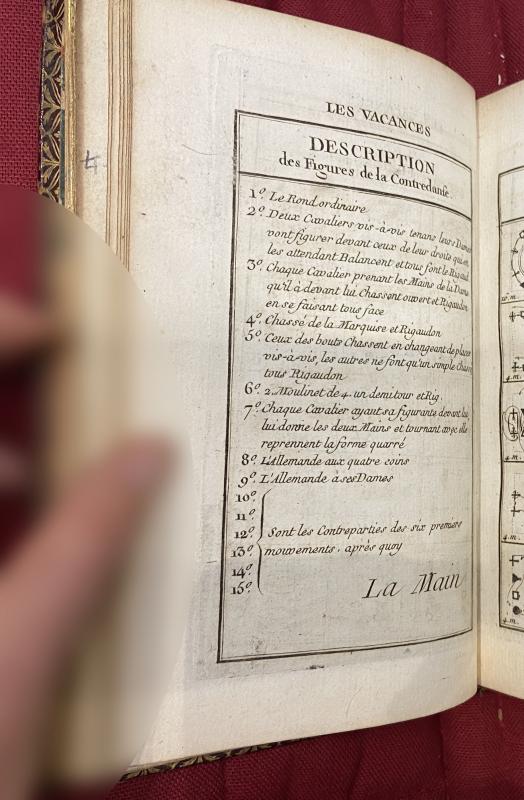 LES VACANCES
DESCRIPTION
des Figures de la Contredanse.
1º. Le Rond ordinaire
2º. Deux Cavaliers vis-à-vis tenans leurs Dames
vont figurer devant ceux de leur droite qui en
les attendant Balancent et tous font le Rigaud.
3º. Chaque Cavalier prenant les Mains de la Dame
qu'il à devant lui Chassent ouvert et Rigaudon
en se faisant tous face
4º. Chassé de la Marquise et Rigaudon
5º. Ceux des bouts Chassent en changeant de places
vis-à-vis, les autres ne font qu'un simple Chassé
tous Rigaudon
6º. 2. Moulinet de 4. un demi tour et Rig.
7º. Chaque Cavalier ayant sa figurante devant lui
lui donne les deux Mains et tournant avec elle
reprennent la forme quarré
8º. L'Allemande aux quatre coins
9º. L'Allemande à ses Dames
10º.
11º.
12º. Sont les Contreparties des six premiers
13º. mouvements, après quoy
14º.
15º.
La Main